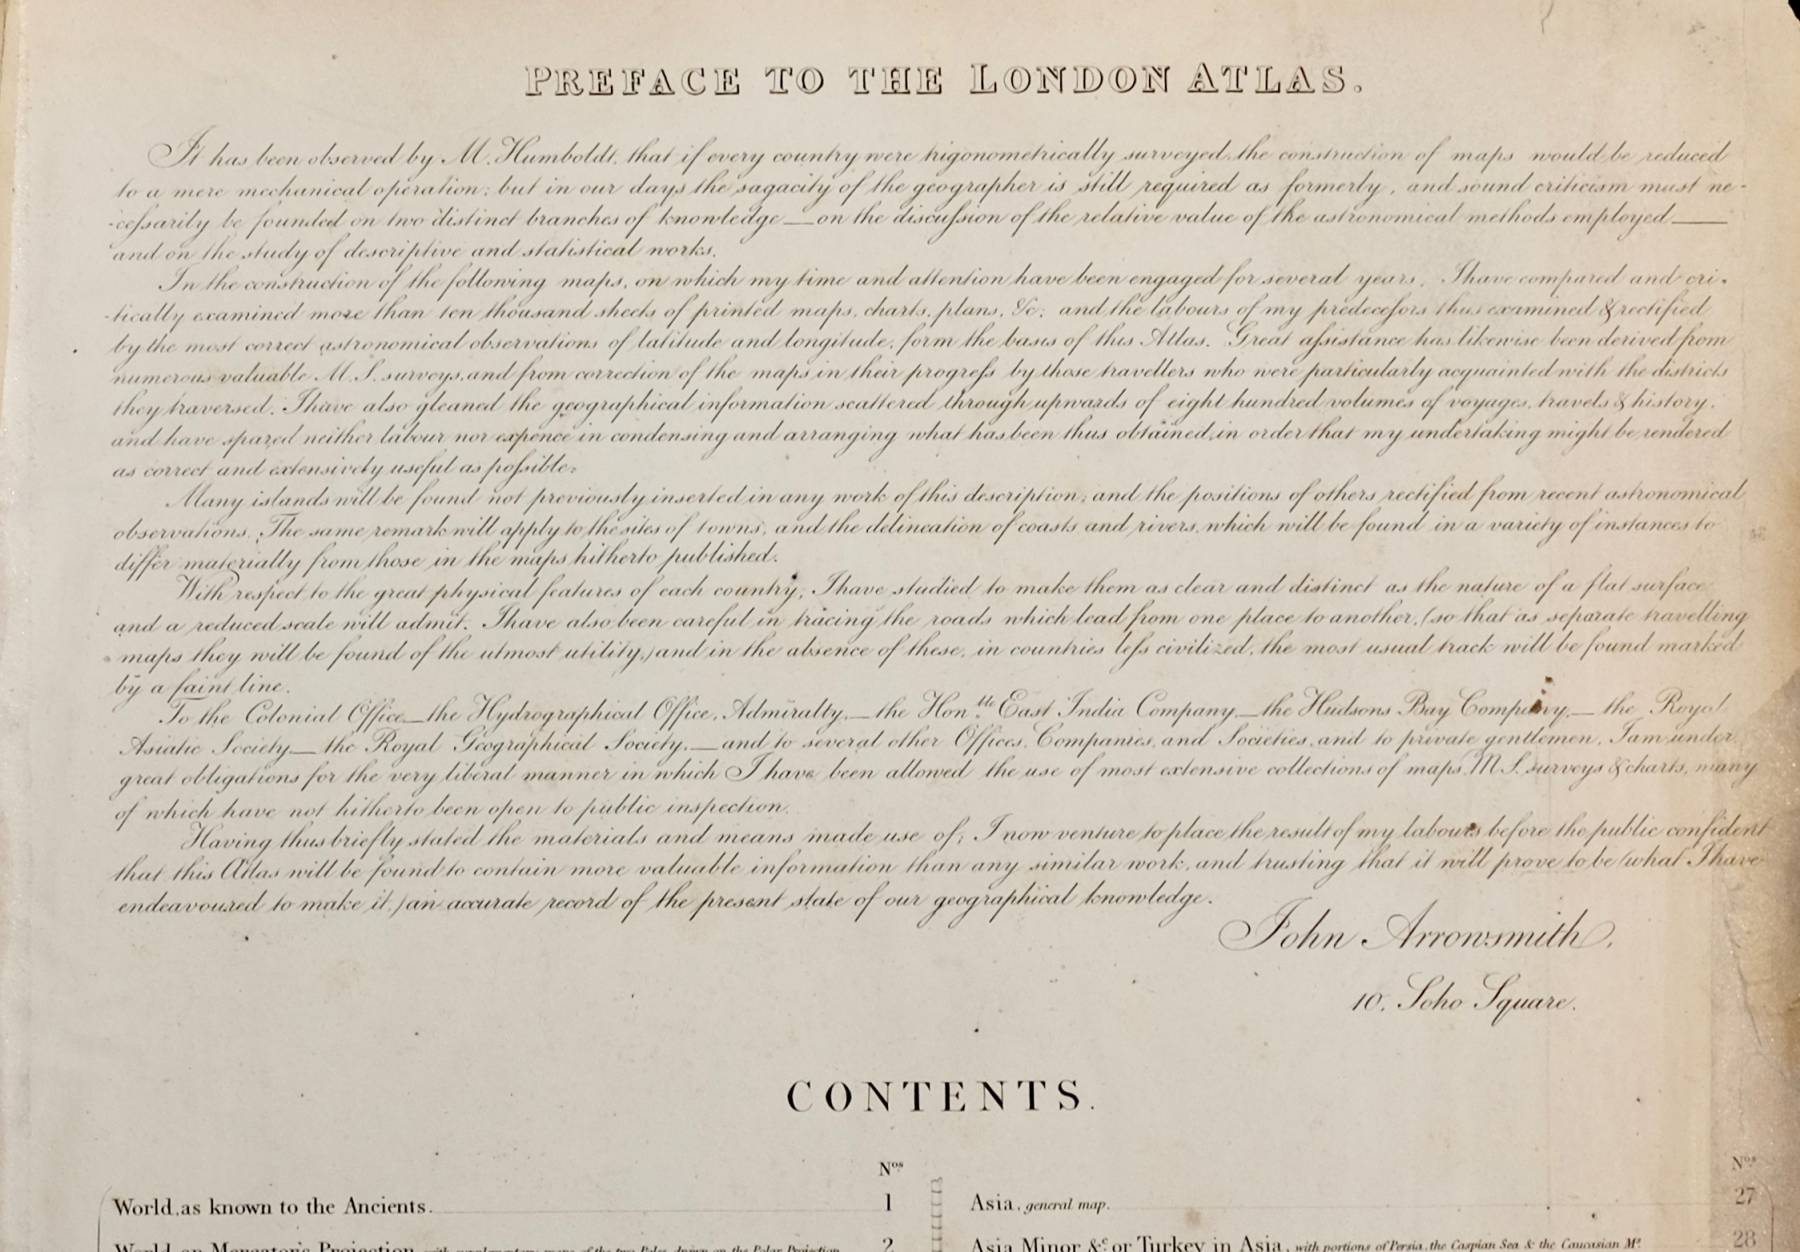 PREFACE TO THE LONDON ATLAS.
It has been observed by M. Humboldt, that if every country were trigonometrically surveyed, the construction of maps would be reduced
to a mere mechanical operation; but in our days the sagacity of the geographer is still required as formerly, and sound criticism must ne-
-cessarily be founded on two distinct branches of knowledge — on the discussion of the relative value of the astronomical methods employed —
and on the study of descriptive and statistical works.
In the construction of the following maps, on which my time and attention have been engaged for several years, I have compared and cri-
-tically examined more than ten thousand sheets of printed maps, charts, plans, &c; and the labours of my predecessors thus examined & rectified
by the most correct astronomical observations of latitude and longitude, form the basis of this Atlas. Great assistance has likewise been derived from
numerous valuable M.S. surveys, and from correction of the maps in their progress by those travellers who were particularly acquainted with the districts
they traversed. I have also gleaned the geographical information scattered through upwards of eight hundred volumes of voyages, travels & history;
and have spared neither labour nor expence in condensing and arranging what has been thus obtained, in order that my undertaking might be rendered
as correct and extensively useful as possible.
Many islands will be found not previously inserted in any work of this description; and the positions of others rectified from recent astronomical
observations. The same remark will apply to the sites of towns, and the delineation of coasts and rivers, which will be found in a variety of instances to
differ materially from those in the maps hitherto published.
With respect to the great physical features of each country, I have studied to make them as clear and distinct as the nature of a flat surface
and a reduced scale will admit. I have also been careful in tracing the roads which lead from one place to another, (so that as separate travelling
maps they will be found of the utmost utility,) and in the absence of these, in countries less civilized, the most usual track will be found marked
by a faint line.
To the Colonial Office — the Hydrographical Office, Admiralty, — the Hon.ble East India Company — the Hudsons Bay Company, — the Royal
Asiatic Society — the Royal Geographical Society, — and to several other Offices, Companies, and Societies, and to private gentlemen, I am under
great obligations for the very liberal manner in which I have been allowed the use of most extensive collections of maps, M.S. surveys & charts, many
of which have not hitherto been open to public inspection.
Having thus briefly stated the materials and means made use of; I now venture to place the result of my labours before the public confident
that this Atlas will be found to contain more valuable information than any similar work, and trusting that it will prove to be (what I have
endeavoured to make it,) an accurate record of the present state of our geographical knowledge.
John Arrowsmith.
10, Soho Square.
CONTENTS.
Nos
World, as known to the Ancients. 1
World on Mercator's Projection, with supplementary maps of the two Poles, drawn on the Polar Projection 2
Nos
Asia, general map. 27
Asia Minor &c or Turkey in Asia, with portions of Persia, the Caspian Sea & the Caucasian Ms. 28